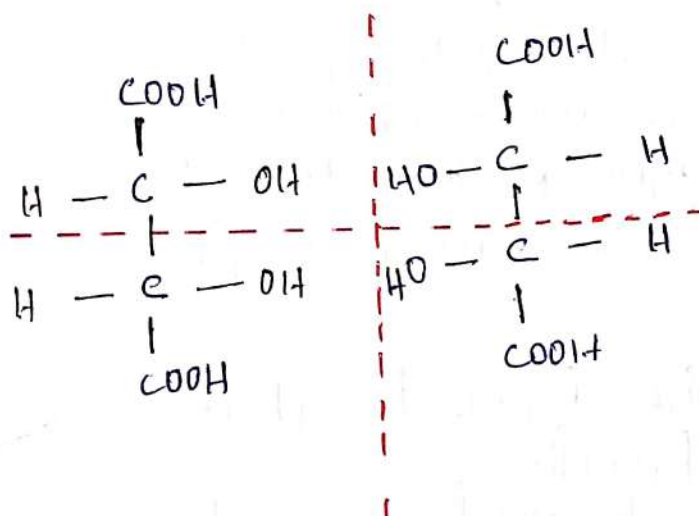 COOH
H — C — OH
H — C — OH
COOH
COOH
HO — C — H
HO — C — H
COOH